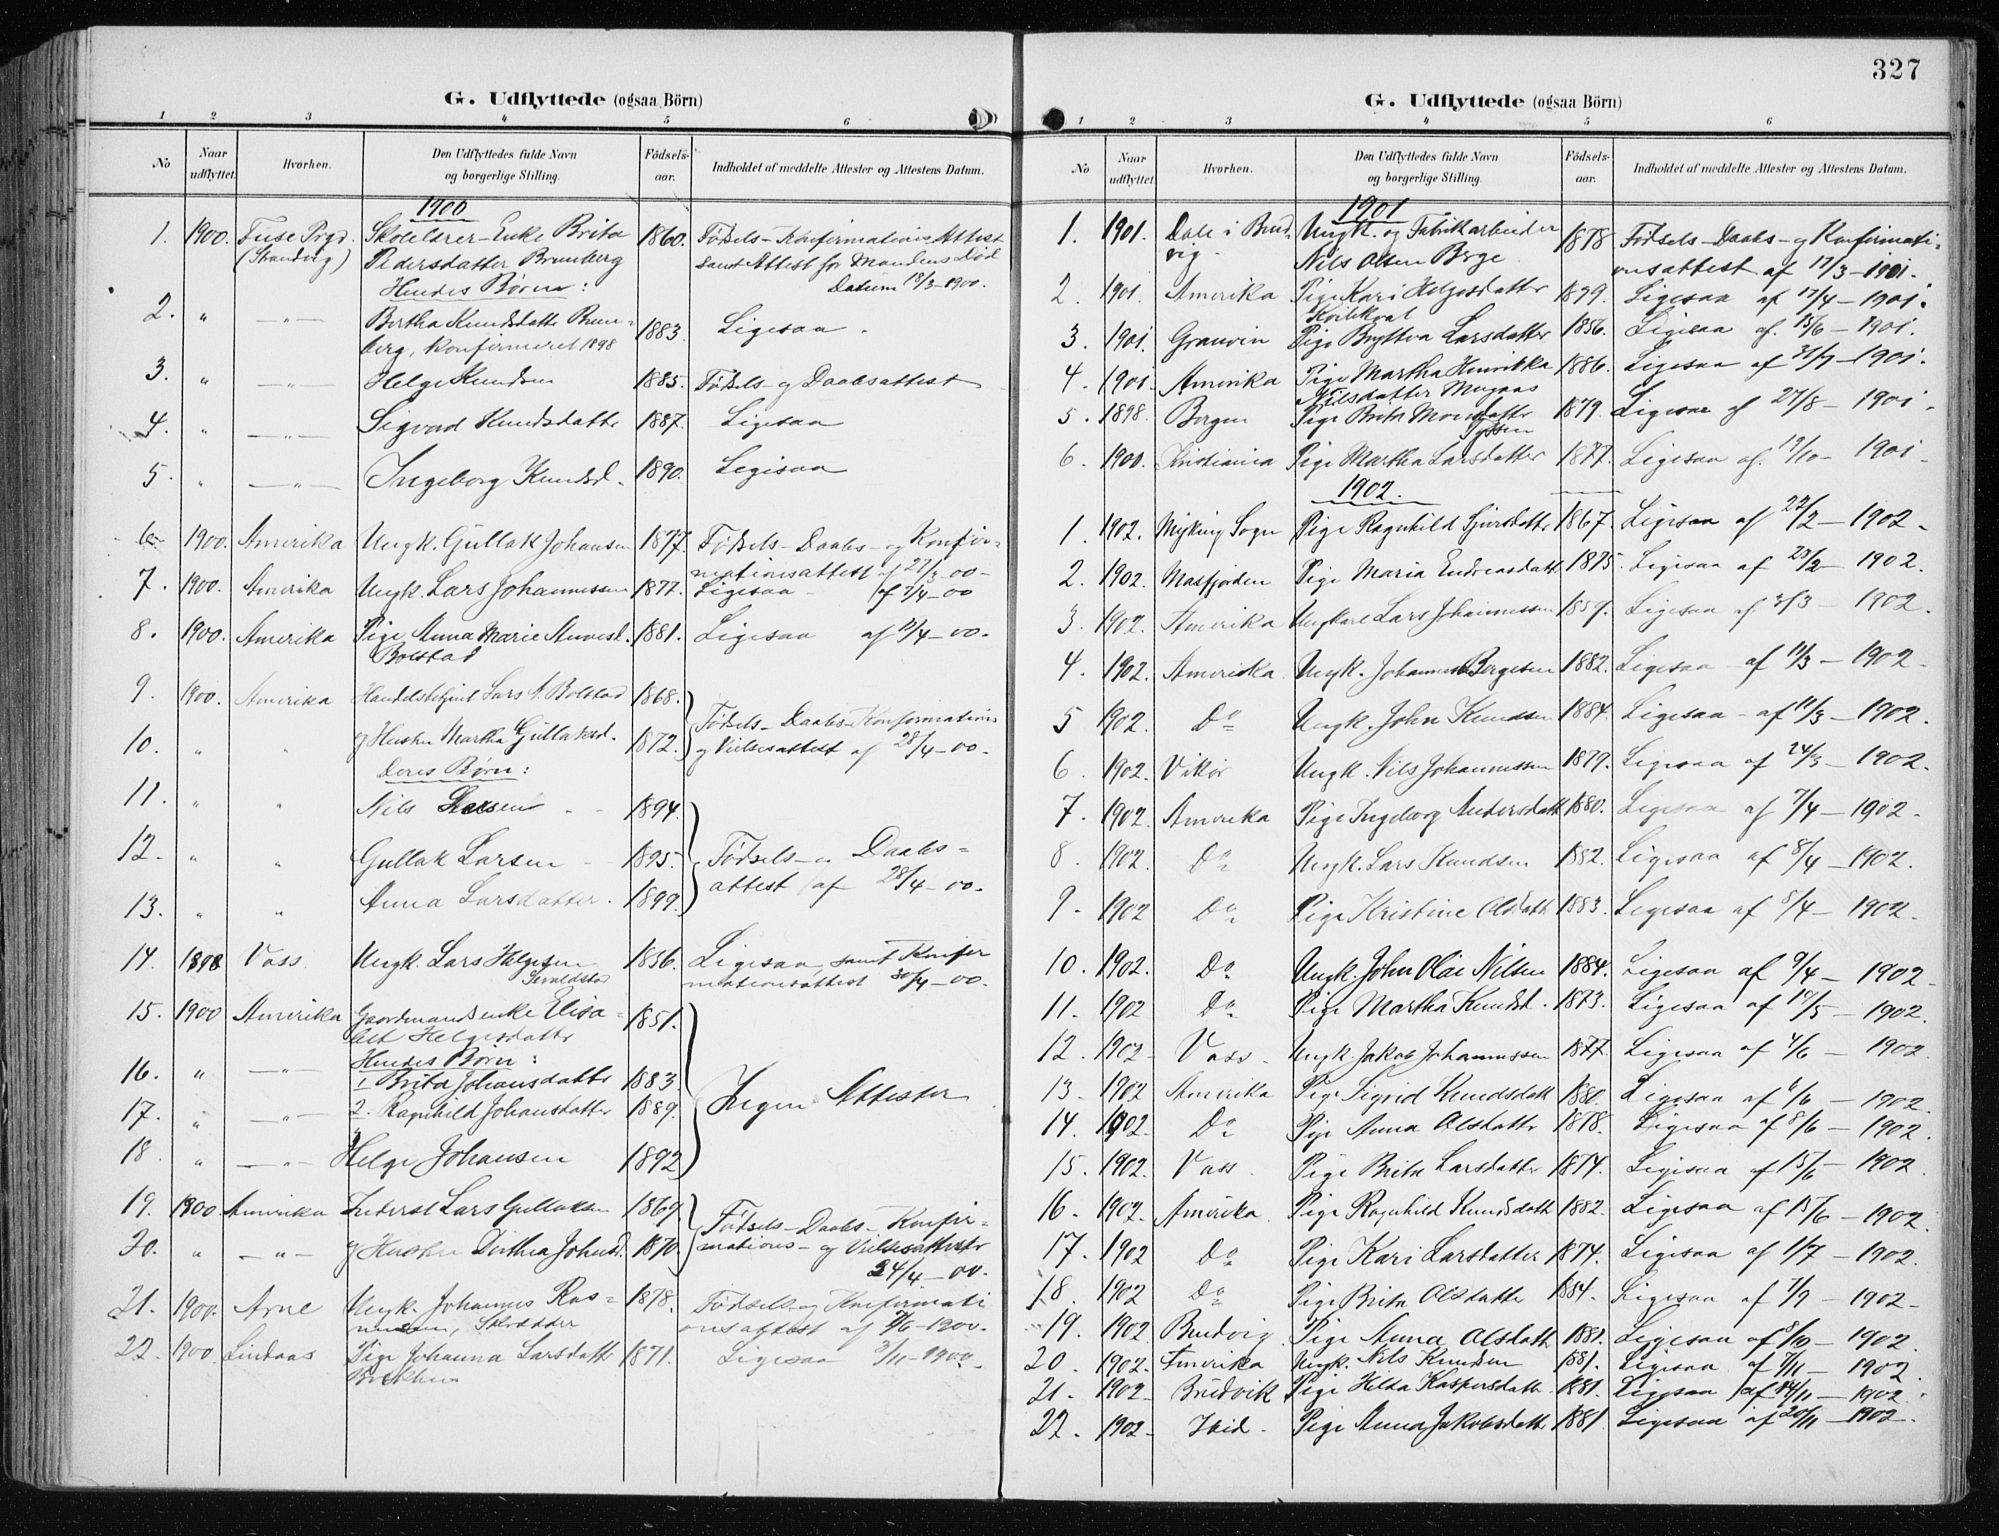 327
G. Udflyttede (ogsaa Börn)
1 2 3 4 5 6
No Naar udflyttet. Hvorhen. Den Udflyttedes fulde Navn og borgerlige Stilling. Födsels-aar. Indholdet af meddelte Attester og Attestens Datum.
1900
1. 1900. Fuse Prgd. Enke Brita 1860. Fødsels- Konfirmations Attest
(Strandvig) Pedersdatter samt Attest for Mandens Død
Hendes Børn: Datum 13/3-1900.
2. " -"- Bertha Knudsdatter 1883. Ligesaa.
berg, Konfirmeret 1898
3. " -"- Helge Knudsen 1885. Fødsels- og Daabsattest
4. " -"- Knudsdatter 1887. Ligesaa
5. " -"- Ingeborg Knudsd. 1890. Ligesaa
6. 1900. Amerika Ungk. Gullak Johansen 1877. Fødsels- Daabs- og Konfir-
mationsattest af 27/3-00-
7. 1900. Amerika Ungk. Lars Johannessen 1877. Ligesaa - af 7/4-00
8. 1900. Amerika Pige Anna Marie 1881. Ligesaa af 12/4-00.
Bolstad
9. 1900. Amerika Lars N. Bolstad 1868.
Fødsels- Daabs- Konfirmations
10. " " og Hustru Martha Gullaksd. 1872. og Vielsesattest af 28/4-00.
Deres Børn:
11. " " Nils Larsen 1894.
12. " " Gullak Larsen 1895. Fødsels- og Daabs-
attest af 28/4-00.
13. " " Anna Larsdatter. 1899.
14. 1898 Voss. Ungk. Lars Helgesen 1856. Ligesaa, samt Konfir
mationsattest 30/4-00.
15. 1900 Amerika Gaardmandsenke Elisa- 1851.
bet Helgesdatter
Hendes Børn:
16. " -"- 1. Brita Johansdatter 1883. Ingen Attester
17. " -"- 2. Ragnhild Johansdatter 1889.
18. " -"- Helge Johansen 1892
19. 1900 Amerika Inderst Lars Gullaksen 1869. Fødsels- Daabs- Konfir-
20. " -"- og Hustru Dorthea Johnsd. 1870. mations- og Vielsesattester
24/4-00.
21. 1900. Arne Ungk. Johannes Ras- 1878. Fødsels- og Konfirmati
mussen, Skrædder onsattest af 7/6-1900.
22. 1900 Lindaas Pige Johanna Larsdatter 1871. Ligesaa 3/11-1900.
G. Udflyttede (ogsaa Börn)
1 2 3 4 5 6
No Naar udflyttet Hvorhen. Den Udflyttedes fulde Navn og borgerlige Stilling. Födsels-aar. Indholdet af meddelte Attester og Attestens Datum.
1901
1. 1901. Dale i Brud- Ungk. og Fabrikarbeider 1878 Fødsels- Daabs- og Konfirmati-
vig. Nils Olsen Berge. onsattest af 17/3-1901.
2. 1901. Amerika Pige Kari Helgesdatter 1879. Ligesaa af 17/4-1901.
3. 1901. Granvin Pige Larsdatter 1856. Ligesaa af. 15/6-1901.
4. 1901. Amerika Pige Martha Henrikka 1886. Ligesaa af 31/7-1901.
Nilsdatter Mugaas
5. 1898. Bergen Pige Brita 1879. Ligesaa af 27/8-1901.
6. 1900. Kristiania Pige Martha Larsdatter 1877. Ligesaa af. 19/10-1901
1902.
1. 1902. Myking Sogn Pige Ragnhild Sjursdatter 1867. Ligesaa af 22/2-1902.
2. 1902. Masfjorden Pige Maria Endreasdatt. 1875. Ligesaa af 23/2-1902.
3. 1902. Amerika Ungkarl Lars Johannessen 1859. Ligesaa af 3/3-1902.
4. 1902. Amerika Ungk. Johannes Børgesen 1882. Ligesaa af 11/3-1902.
5 1902. Do Ungk. John Knudsen 1884. Ligesaa af 11/3-1902.
6. 1902. Vikør Ungk. Nils Johannessen 1879. Ligesaa af 24/3-1902.
7. 1902. Amerika Pige Ingeborg Andersdatt. 1880. Ligesaa af 7/4-1902.
8. 1902. Do Ungk. Lars Knudsen 1882. Ligesaa af 8/4-1902.
9. 1902 Do Pige Kristine Olsdatt. 1883. Ligesaa af 8/4-1902.
10. 1902. Do Ungk. John Olai Nilsen 1884. Ligesaa af 9/4-1902.
11. 1902 Do Pige Martha Knudsd. 1873. Ligesaa af 14/5-1902.
12. 1902- Voss. Ungk. Jakob Johannessen 1877. Ligesaa af 4/6-1902
13. 1902 Amerika Pige Sigrid Knudsdatt 1880. Ligesaa af 6/6-1902.
14. 1902. Do Pige Anna Olsdatter 1878. Ligesaa af 8/6-1902.
15. 1902. Voss. Pige Brita Larsdatter 1874. Ligesaa af 15/6-1902
16. 1902. Amerika. Pige Ragnhild Knudsdatt. 1882. Ligesaa af 15/6-1902.
17. 1902 Do Pige Kari Larsdatter 1874. Ligesaa af 1/7-1902.
18. 1902 Do Pige Brita Olsdatter 1884. Ligesaa af 7/9-1902.
19. 1902 Brudvig. Pige Anna Olsdatt. 1881. Ligesaa af 8/10-1902.
20. 1902. Amerika Ungk. Nils Knudsen 1881. Ligesaa af 7/11-1902.
21. 1902- Brudvik Pige Helda Kaspersdatt. 1881. Ligesaa af 14/11-1902.
22. 1902- Ibid. Pige Anna Jakobsdatt. 1881 Ligesaa af 20/11-1902.